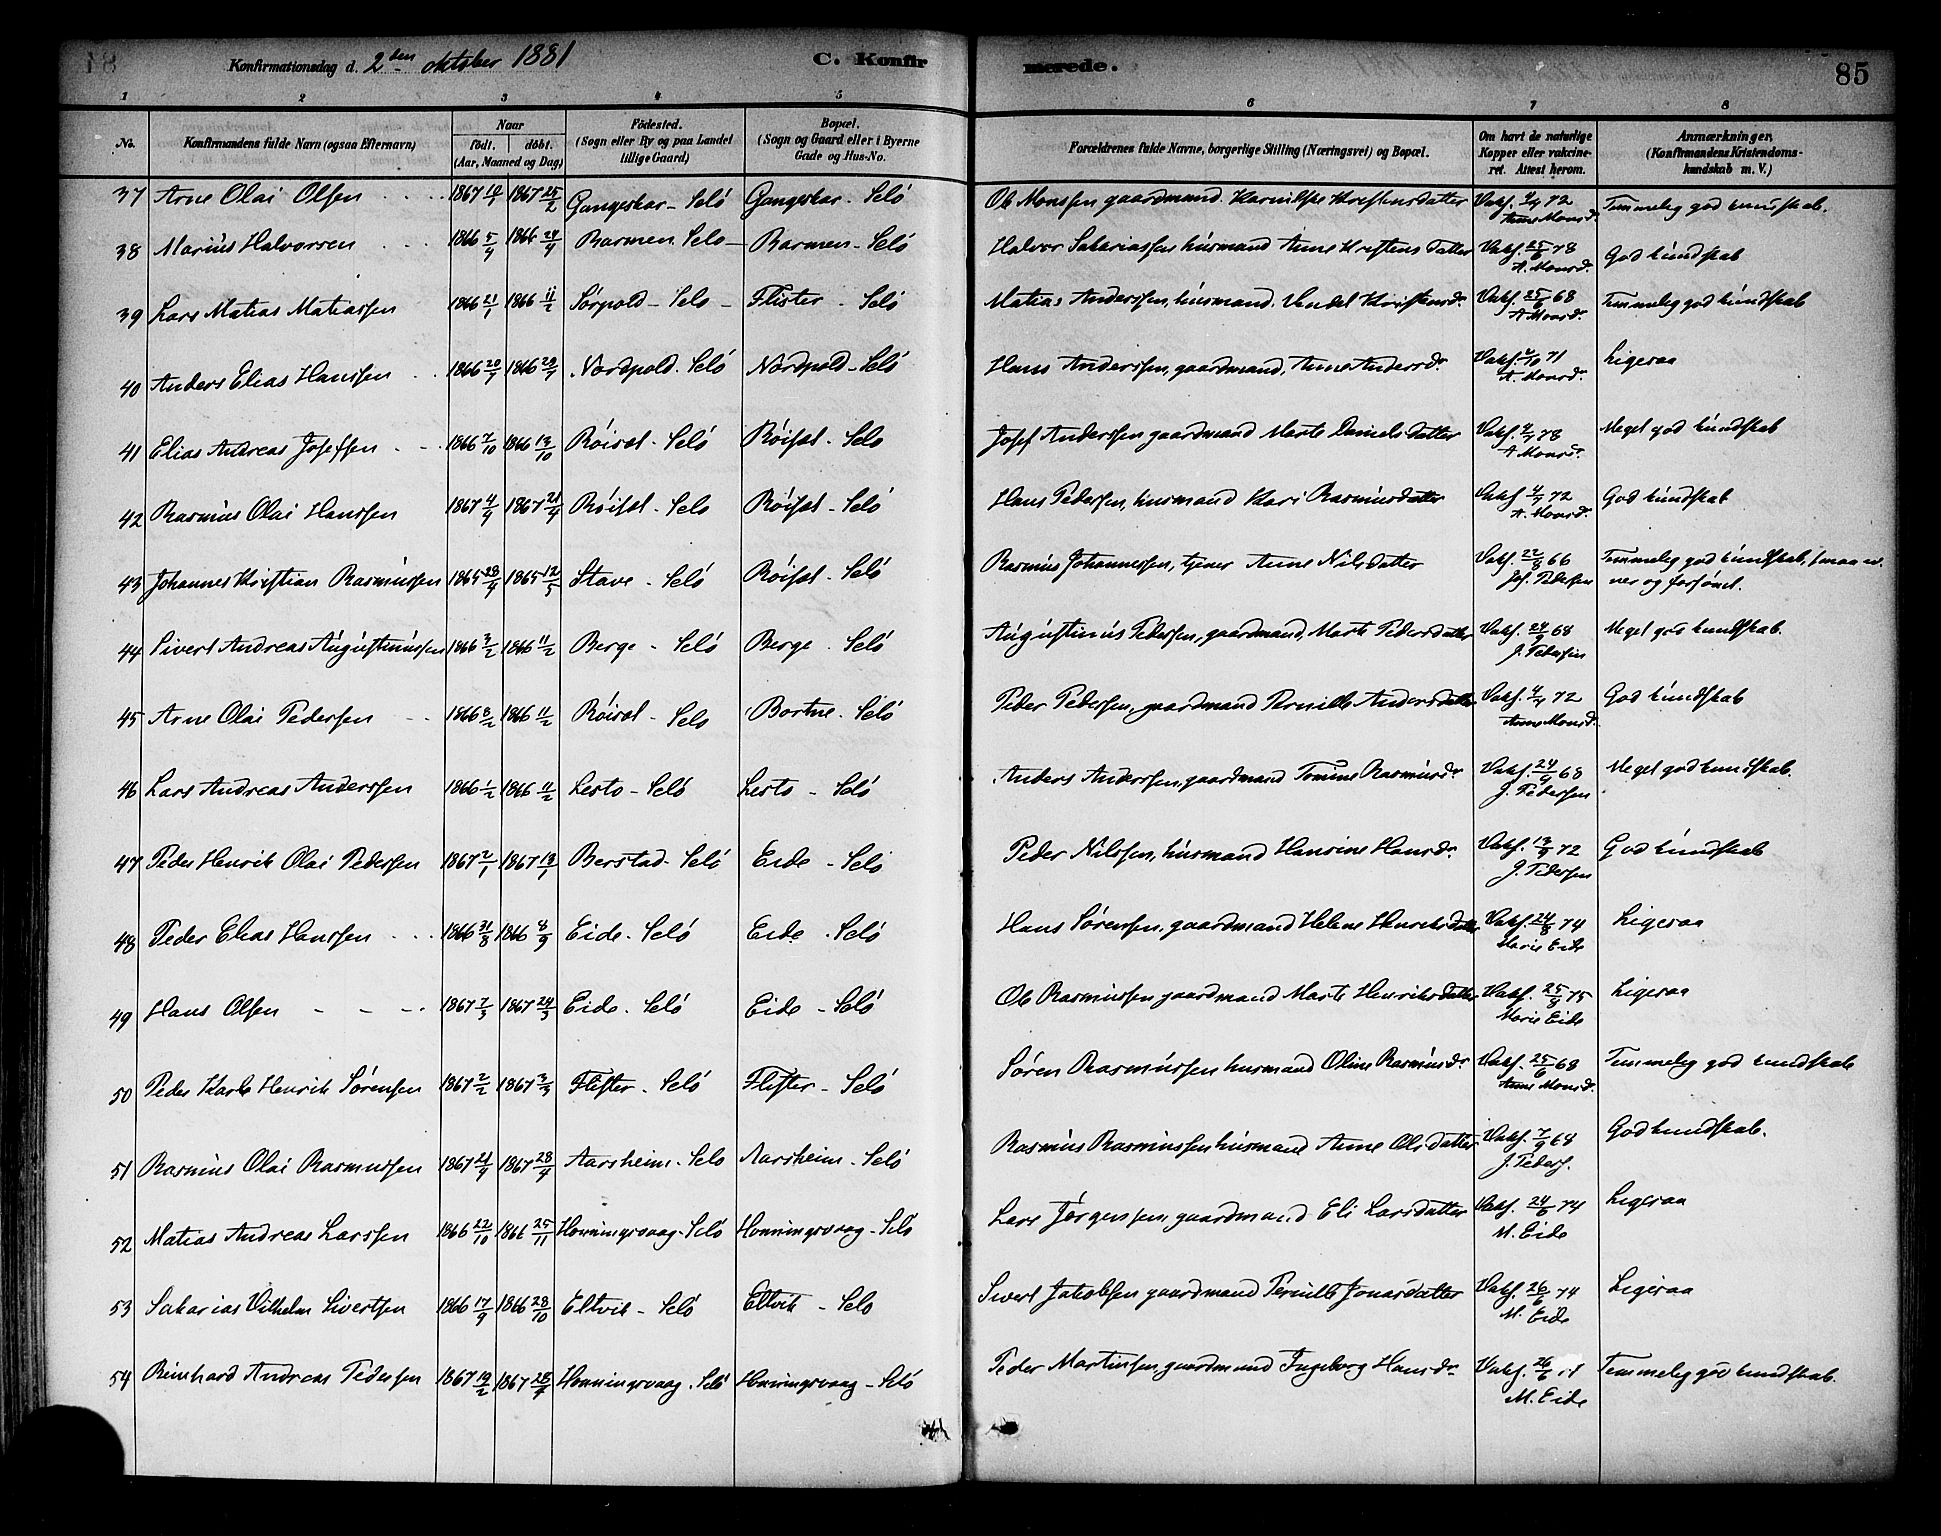 Konfirmationsdag d. 2den oktober 1881 C. Konfirmerede. 85
1 2 3 4 5 6 7 8
No. Konfirmandens fulde Navn (ogsaa Efternavn) Naar födt. döbt. (Aar, Maaned og Dag) Födested. (Sogn eller By og paa Landet tillige Gaard) Bopæl. (Sogn og Gaard eller i Byerne Gade og Hus-No. Forældrenes fulde Navne, borgerlige Stilling (Næringsvei) og Bopæl. Om havt de naturlige Kopper eller vakcineret. Attest herom. Anmærkninger, (Konfirmandens Kristendomskundskab m. V.)
37 Arne Olai Olsen 1867 1867 25/2 Gangeskar - Selö Gangeskar - Selö Ole Monssen gaardmand. Karnilske Kristensdatter Vakf. 4/7 72 Anne Monsd. Temmelig god kundskab.
38 Marius Halvorsen 1866 5/4 1866 24/4 Barmen Selo Barmen - Selö Halvor Sakariassen husmand Anne Kristens datter Vakf. 25/6 78 A. Monsd. God kundskab
39 Lars Matias Matiassen 1866 21/1 1866 11/2 Sörpold - Selo Flister - Selö Matias Anderssen, husmand. Vendel Kristensd. Vakf. 25/6 68 A Monsd. Temmelig god kundskab
40 Anders Elias Hanssen 1866 20/7 1866 29/7 Nordpold. Selö Nordpold - Selö Hans Anderssen, gaardmand, Anne Andersd. Vakf. 71 A. Monsd. Ligesaa
41 Elias Andreas Josefsen 1866 7/10 1866 13/10 Röisæt - Selö Röisæt - Selo Josef Anderssen gaardmand Marte Daniels datter Vakf. 4/7 78 A Monsd. Meget god kundskab
42 Rasmus Olai Hanssen 1867 4/9 1867 21/9 Röisæt - Selo Röisæt - Selö Hans Pedersen, husmand Kari Rasmusdatter Vakf 4/7 72 A. Monsd. God kundskab
43 Johannes Kristian Rasmussen 1865 28/4 1865 12/5 Stave - Selö Röisæt - Selö Rasmus Johannessen, tjener Anne Nilsdatter Vakf. 22/8 66 Joh. Pedersen Temmelig god kundskab,
ner og forsömt.
44 Sivert Andreas Augustinussen 1866 3/2 1866 11/2 Berge - Selö Berge - Selö Augustinus Pedersen, gaardmand, Marte Pedersdatter Vakf. 24/9 68 J. Pedersen Meget god kundskab.
45 Arne Olai Pedersen 1866 8/2 1866 11/2 Röisæt - Selo Bortne - Selö Peder Pedersen, gaardmand Pernille Andersdatter Vakf. 4/7 72 Anne Monsd. God kundskab
46 Lars Andreas Anderssen 1866 1/2 1866 11/2 Lesto - Selö Lesto - Selö Anders Anderssen, gaardmand Tomine Rasmusd. Vakf. 24/9 68 J. Pedersen Meget god kundskab.
47 Peder Henrik Olai Pedersen 1867 2/1 1867 13/1 Berstad - Selö Eide - Selö Peder Nilssen, husmand Hansine Hansd. Vakf. 13/9 72 J. Pedersen God kundskab
48 Peder Elias Hanssen 1866 31/8 1866 8/9 Eide. Selö Eide. Selö Hans Sörensen, gaardmand Helene Henriksdatter Vakf. 24/8 74 Marie Eide Ligesaa
49 Hans Olsen 1867 7/3 1867 24/3 Eide. Selö Eide - Selö Ole Rasmussen gaardmand Marte Henriksdatter Vakf. 25/8 75 Marie Eide Ligesaa
50 Peder Karl Henrik Sörensen 1867 2/2 1867 3/3 Flister - Selö Flister - Selö Sören Rasmussen husmand Oline Rasmusd. Vakf. 25/6 68 Anne Monsd. Temmelig god kundskab
51 Rasmus Olai Rasmussen 1867 21/4 1867 28/4 Aarsheim - Selo Aarsheim - Selö Rasmus Rasmussen husmand Anne Olsdatter Vakf. 7/9 68 J. Peders. God kundskab.
52 Matias Andreas Larssen 1866 22/10 1866 25/11 Honningsvaag - Selö Honningsvaag - Selö Lars Jörgensen, gaardmand Eli Larsdatter Vakf. 24/6 74 M. Eide Ligesaa
53 Sakarias Vilhelm Sivertsen 1866 17/9 1866 28/10 Eltvik - Selö Eltvik - Selo Sivert Jakobsen gaardmand Pernille Jonasdatter Vakf. 26/6 74 M. Eide Ligesaa
54 Reinhard Andreas Pedersen 1867 19/2 1867 28/4 Honningsvaag - Selö Honningsvaag - Selö Peder Martinsen, gaardmand Ingeborg Hansd. Vakf. 26/6 M. Eide Temmelig god kundskab.